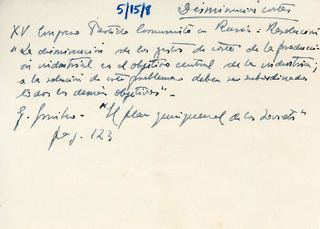 5/15/8
Disminución costes
XV Congreso Partido Comunista en Rusia: Resolución
"La disminución de los gastos de costes de la producci
ón industrial es el objetivo central de la industria;
a la solución de este problema deben ser subordinados
todos los demás objetivos".
G. Grinko - "El plan quinquenal de los Soviets"
pag. 123